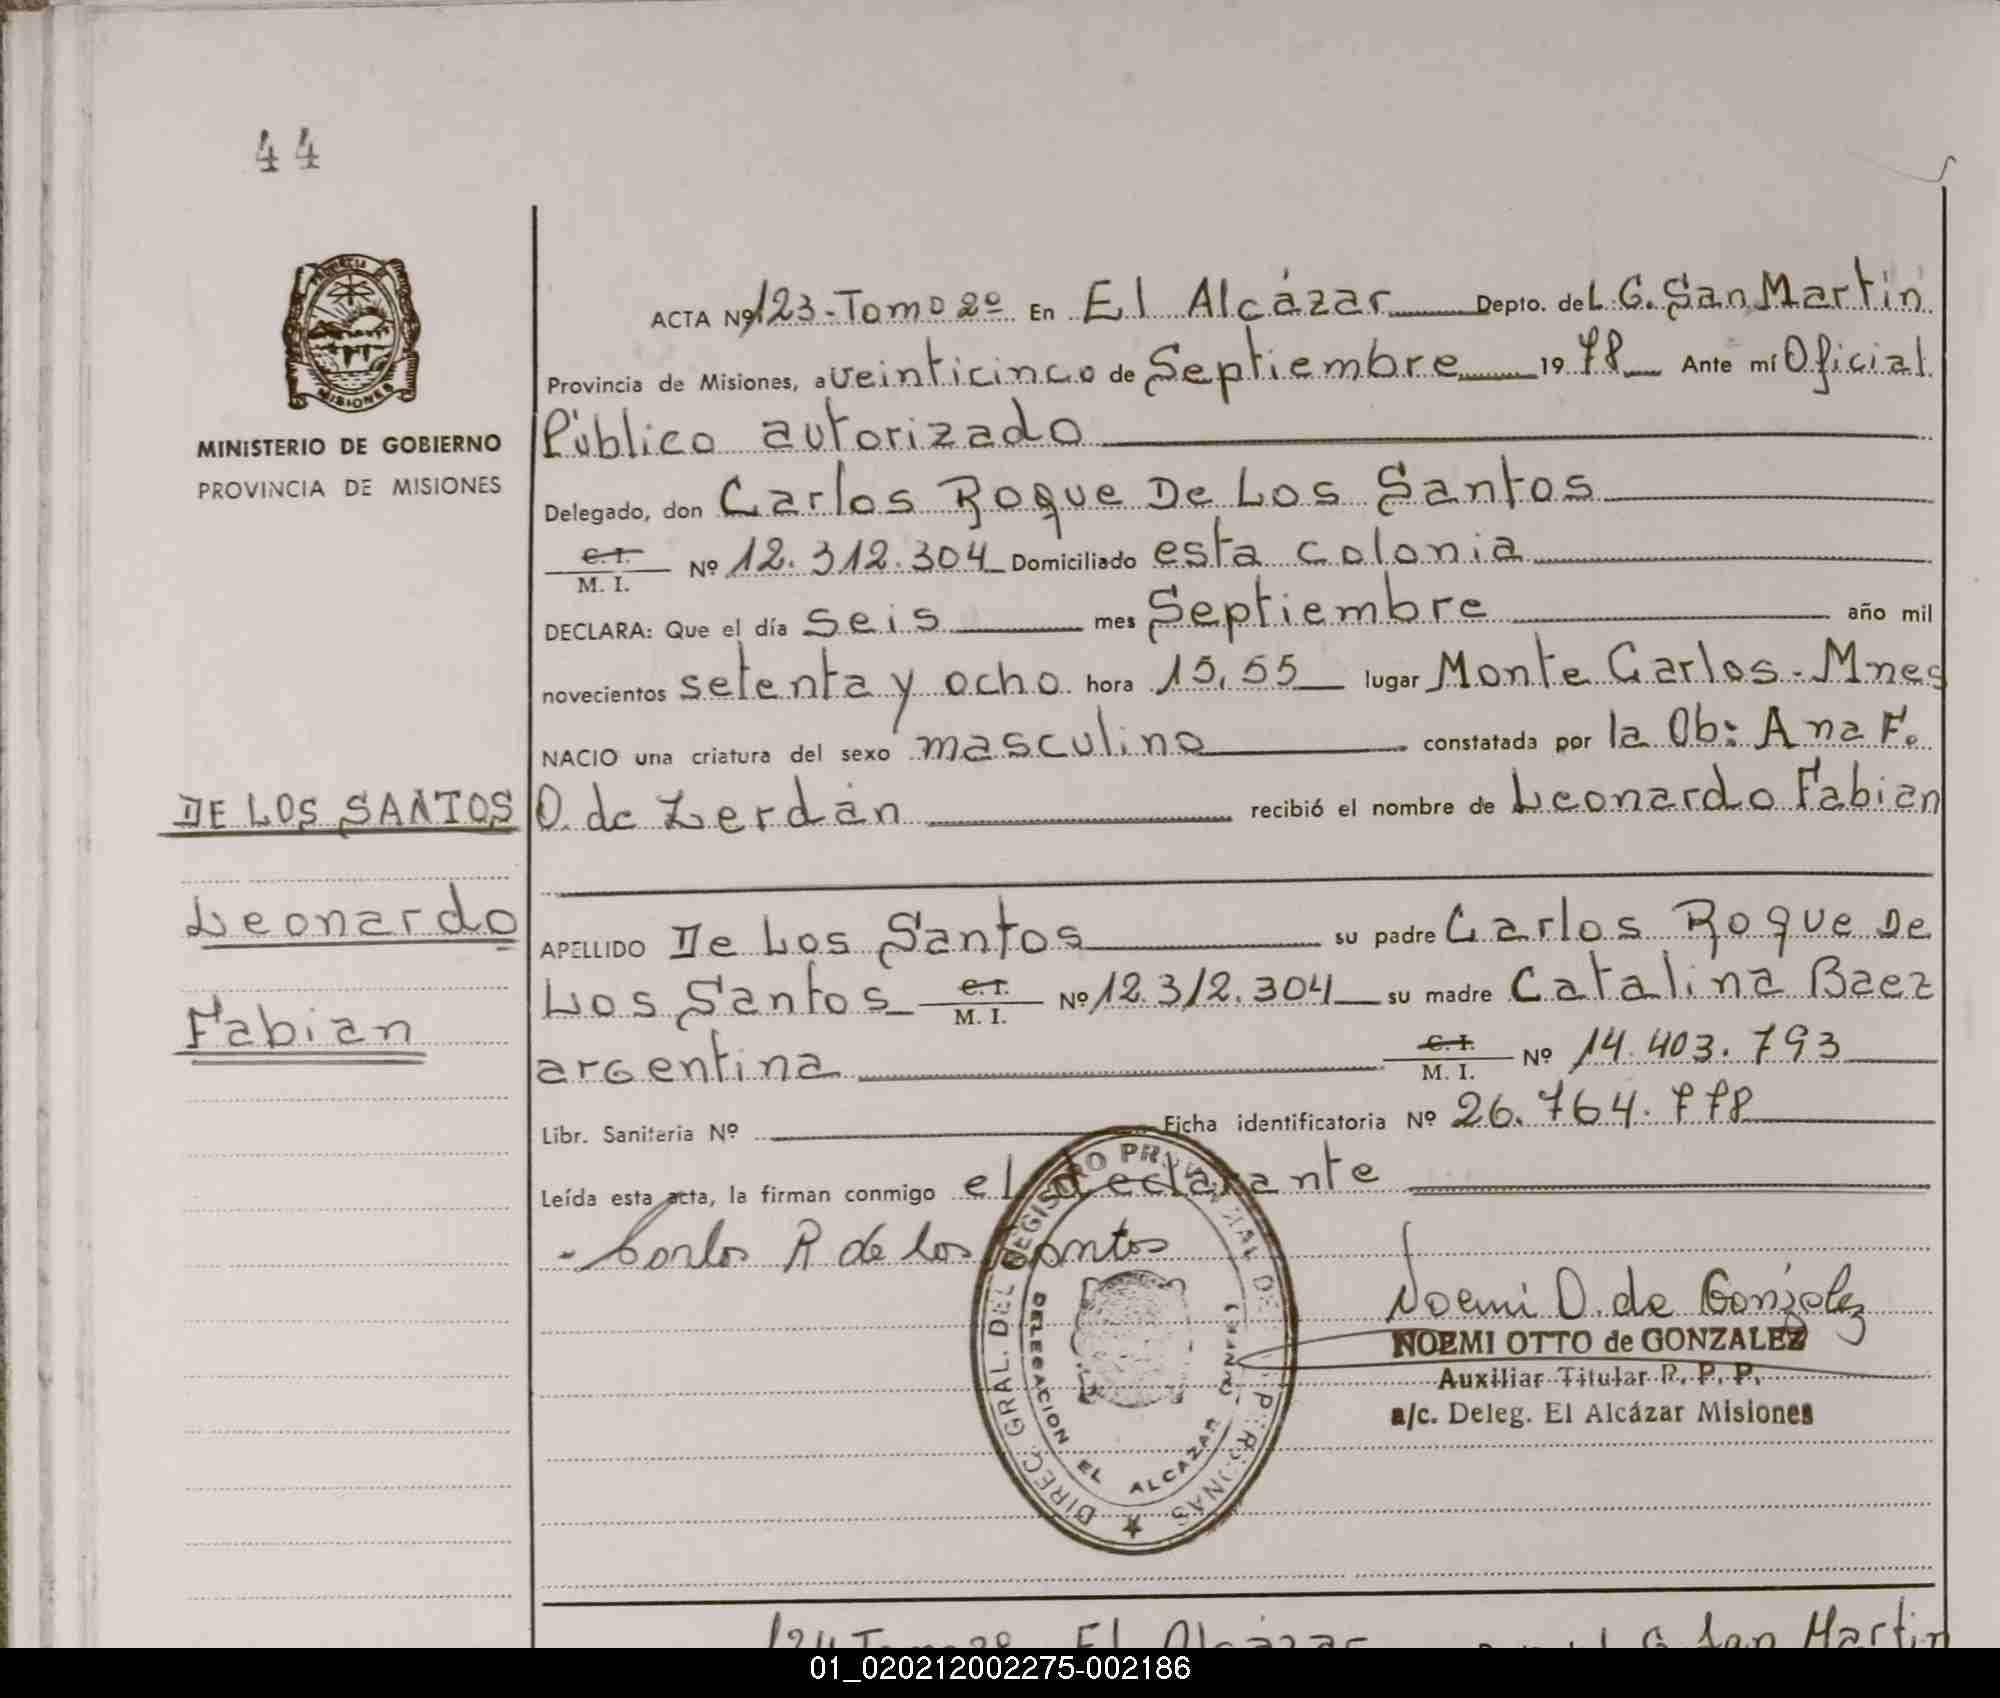 44
PROVINCIA DE
MISIONES
MINISTERIO DE GOBIERNO
PROVINCIA DE MISIONES
ACTA Nº 123-Tomo 2º En El Alcázar Depto. de L. G. San Martín
Provincia de Misiones, a veinticinco de Septiembre 1978 Ante mí Oficial
Público autorizado
Delegado, don Carlos Roque De Los Santos
C. I.
M. I. Nº 12.312.304 Domiciliado esta colonia
DECLARA: Que el día seis mes Septiembre año mil
novecientos setenta y ocho hora 15,55 lugar Monte Carlos-Mnes
NACIO una criatura del sexo masculino constatada por la Ob: Ana F.
DE LOS SANTOS
O. de Zerdán recibió el nombre de Leonardo Fabian
Leonardo
Fabian
APELLIDO De Los Santos su padre Carlos Roque De
Los Santos C. I.
M. I. Nº 12.312.304 su madre Catalina Baez
argentina C. I.
M. I. Nº 14.403.793
Libr. Sanitaria Nº Ficha identificatoria Nº 26.764.778
Leída esta acta, la firman conmigo el declarante
- Carlos R de los Santos
Noemi O. de González
NOEMI OTTO de GONZALEZ
Auxiliar Titular R. P. P.
a/c. Deleg. El Alcázar Misiones
DIREC. GRAL. DEL REGISTRO PROVINCIAL DE PERSONAS
DELEGACION EL ALCAZAR
124 Tomo 2º El Alcázar G. San Martin
01_020212002275-002186